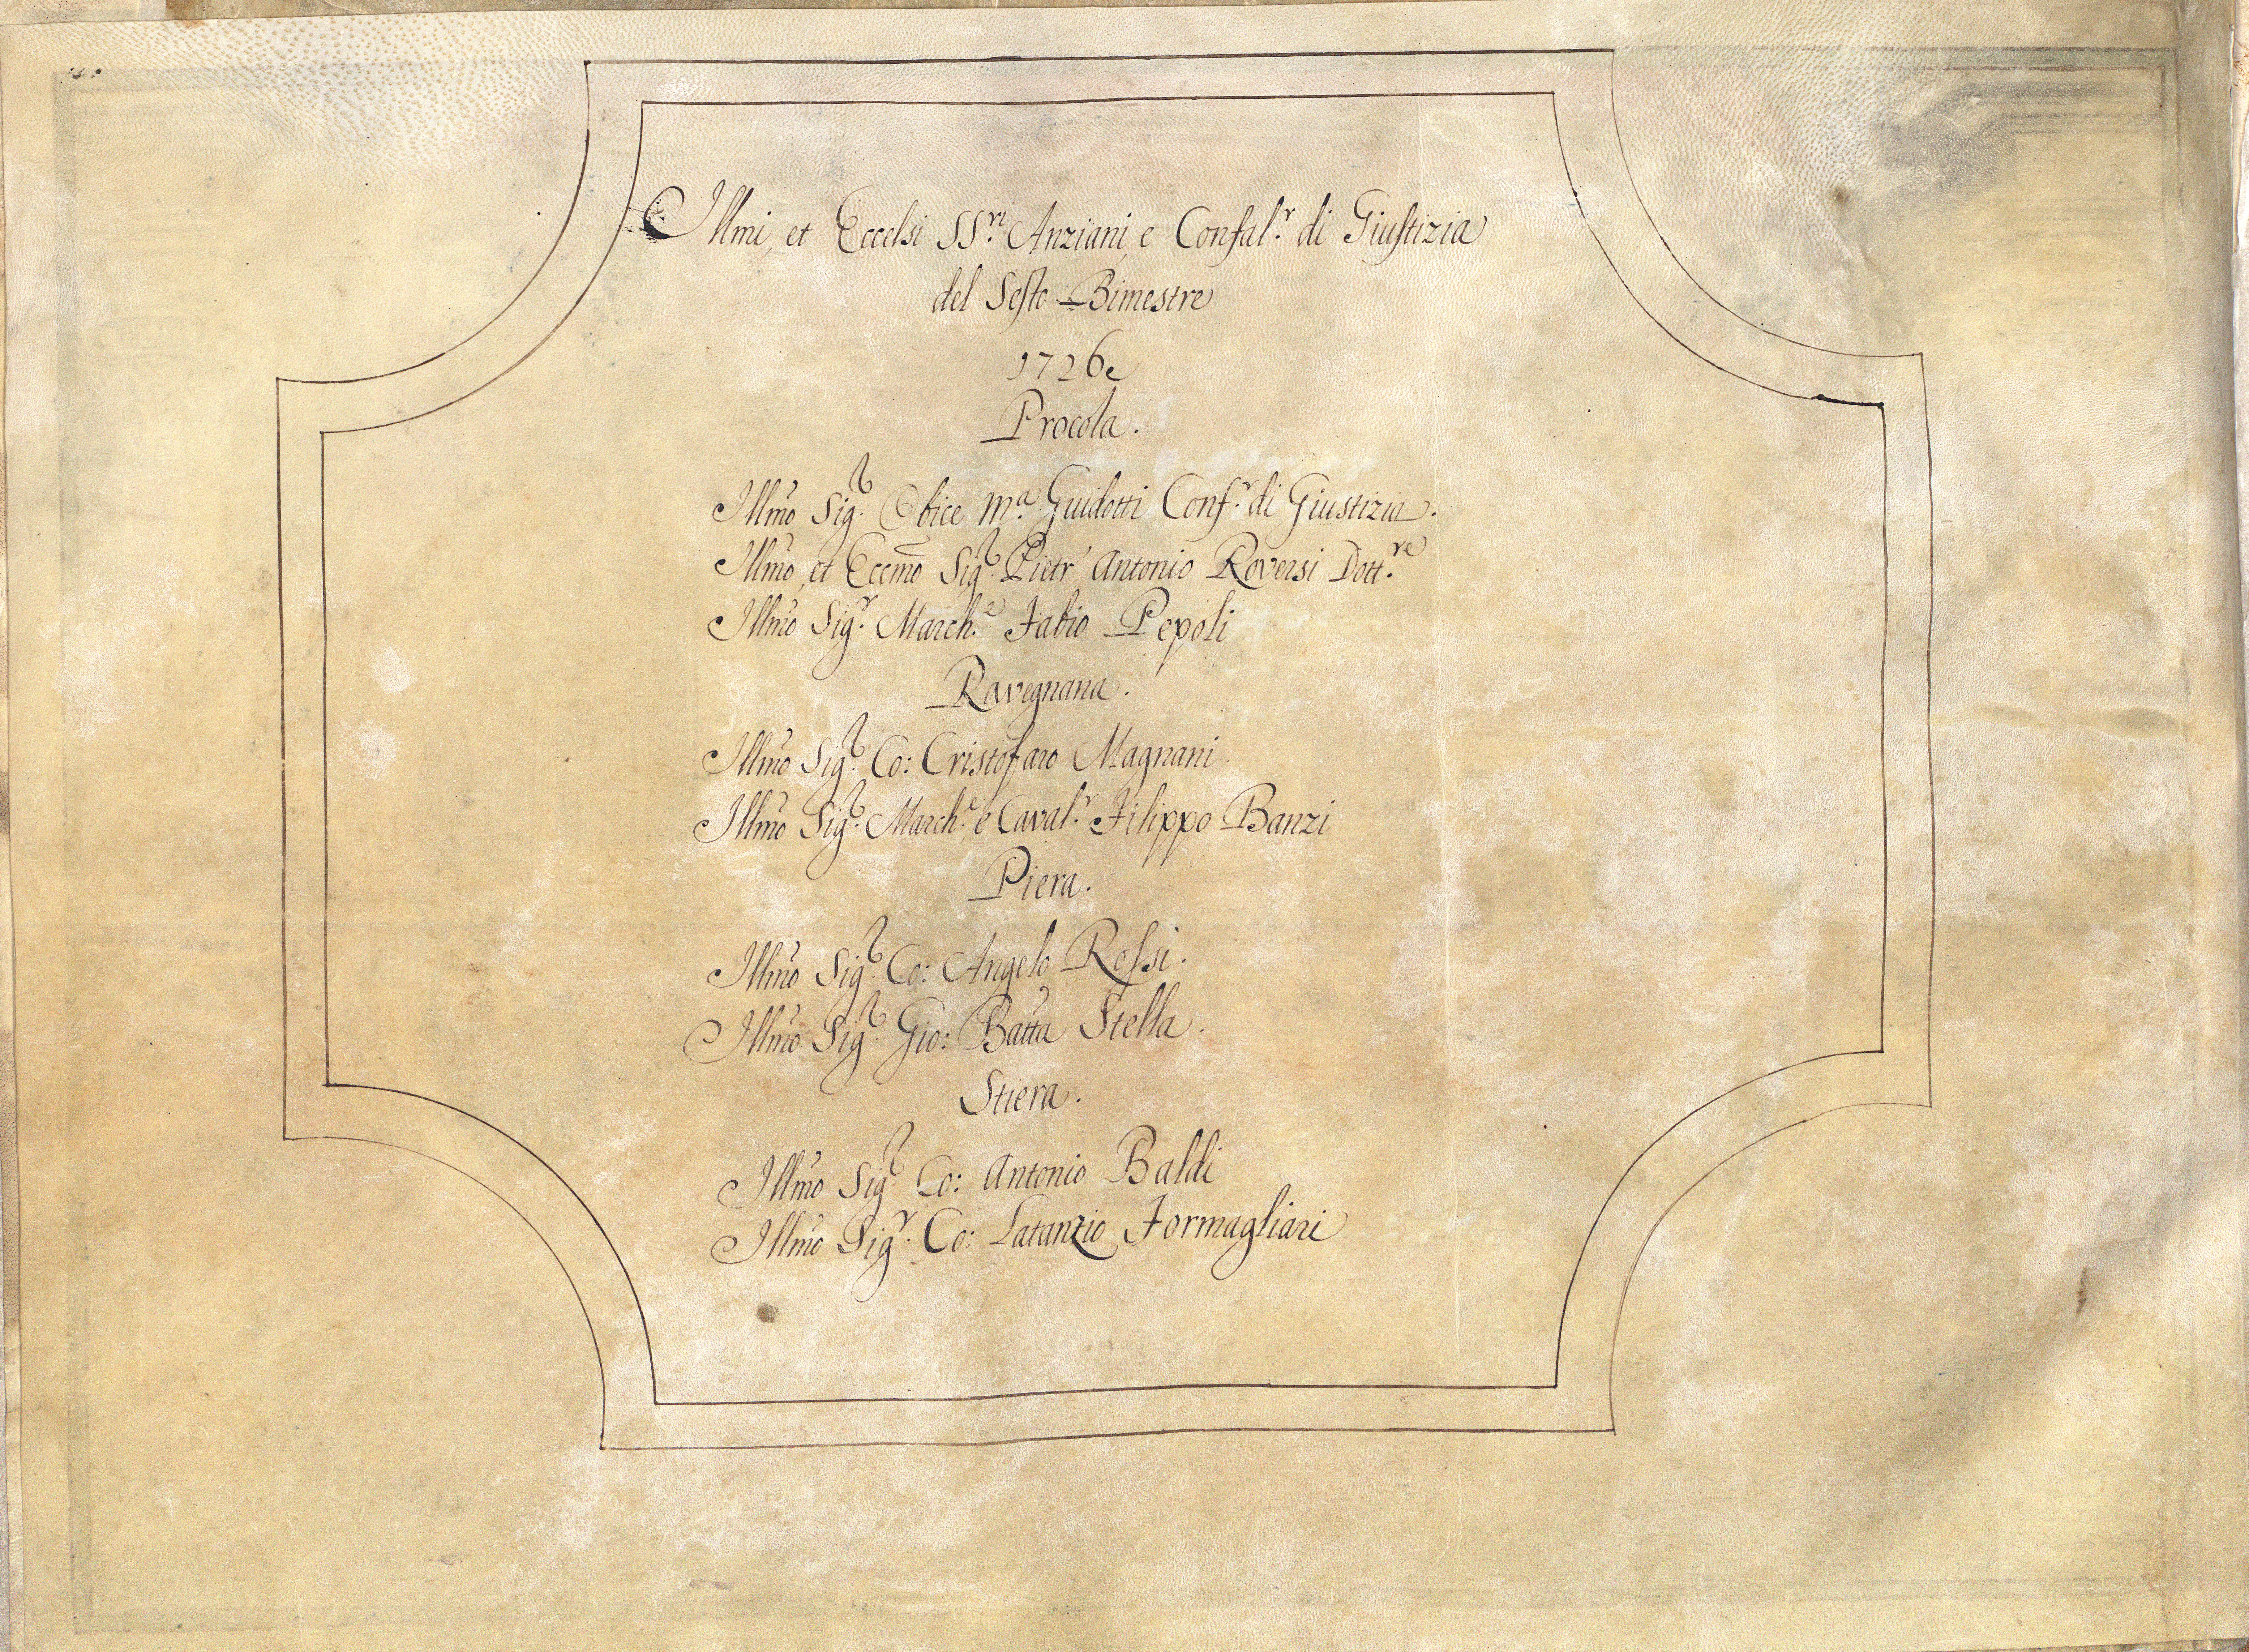 Illmi, et Eccelsi SS.ri Anziani, e Confal.r di Giustizia
del Sesto Bimestre
1726
Procola.
Illmo Sig.r Obice M.a Guidotti Conf.r di Giustizia.
Illmo, et Eccmo Sig.r Pietr' Antonio Roversi Dott.re
Illmo Sig.r March.e Fabio Pepoli
Ravegnana.
Illmo Sig.r Co: Cristofaro Magnani
Illmo Sig.r March.e, e Caval.r Filippo Banzi
Piera.
Illmo Sig.r Co: Angelo Rossi.
Illmo Sig.r Gio: Batta Stella.
Stiera.
Illmo Sig.r Co: Antonio Baldi
Illmo Sig.r Co: Latanzio Formagliari